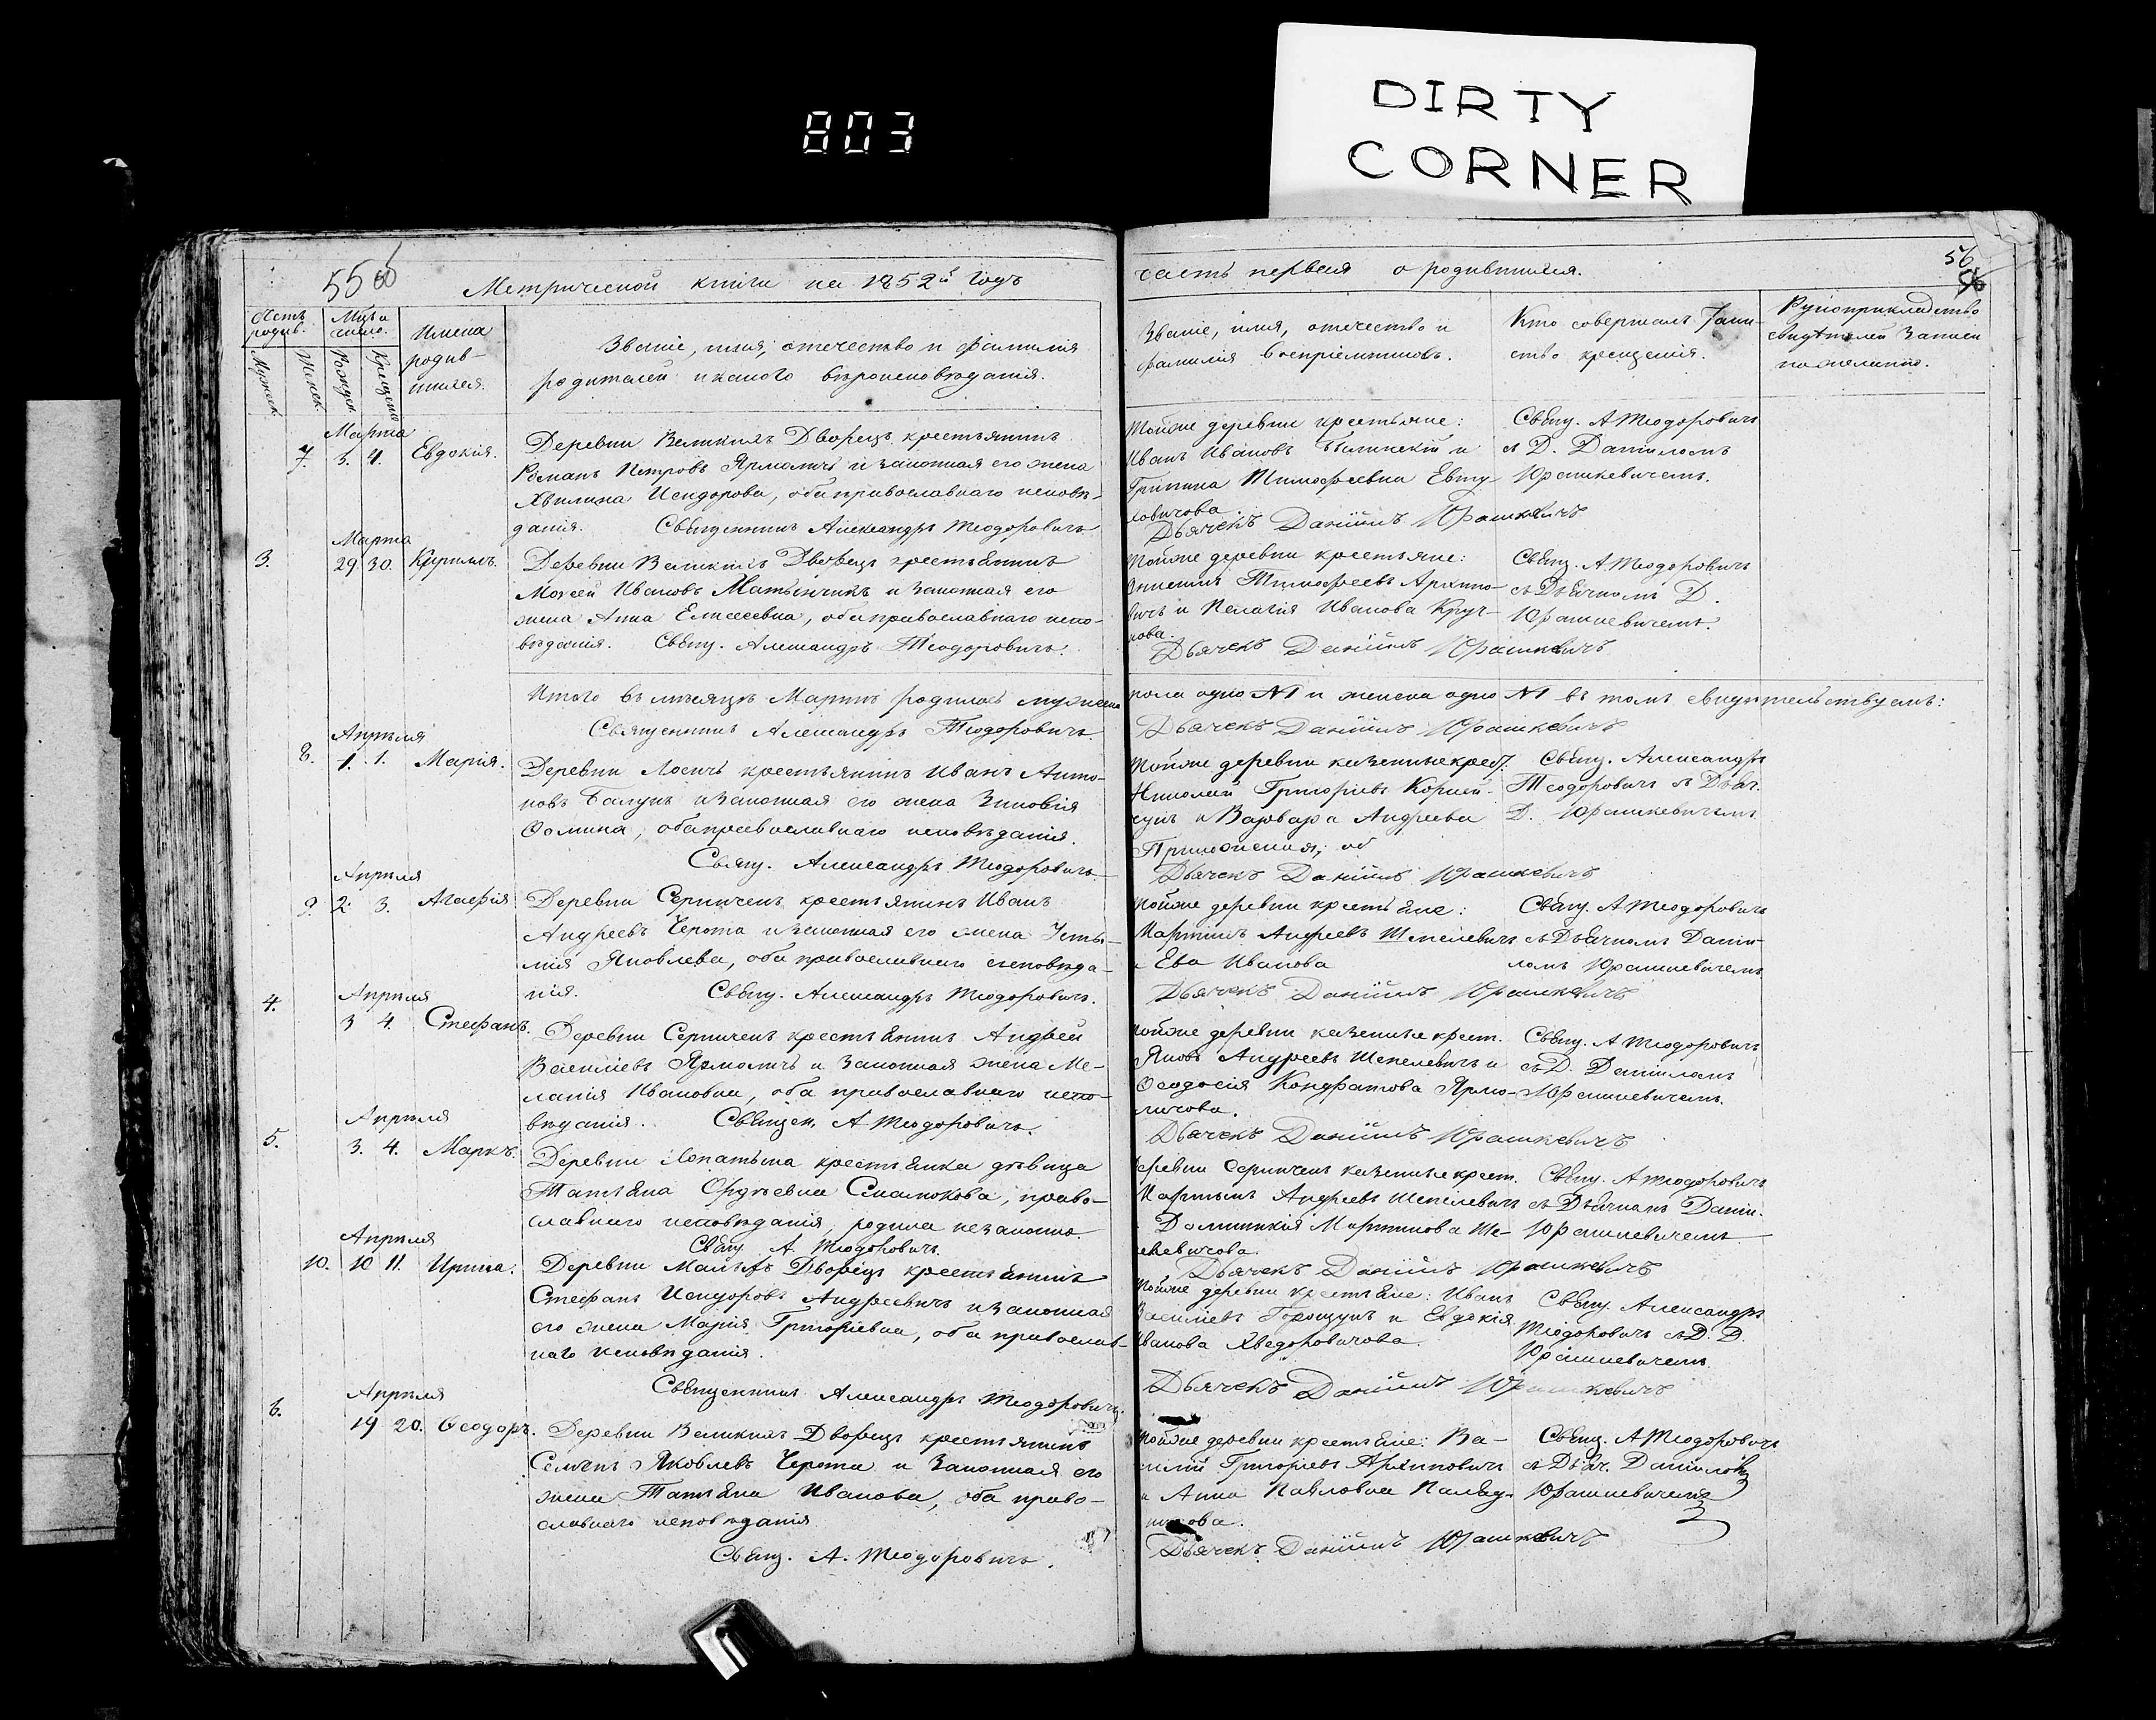 DIRTY
CORNER
803
55
Метрической книги на 1852й годъ
Имена
родив-
шихся.
Званіе, имя, отечество и фамилія
родителей и какого вѣроисповѣданія.
Марта
7. 3. 4. Евдокія.
Деревни Великихъ Дворецъ крестьянинъ
Романъ Петровъ Ярмоличъ и законная его жена
Исидорова, оба православнаго исповѣ-
данія. Священникъ Александръ Теодоровичъ
Марта
3. 29 30. Кириллъ.
Деревни Великихъ Дворецъ крестьянинъ
Мойсей Ивановъ и законная его
жена Анна Елисеевна, оба православнаго испо-
вѣданія. Свящ. Александръ Теодоровичъ.
Итого въ мѣсяцѣ Мартѣ родилось мужеска
Священникъ Александръ Теодоровичъ
Апрѣля
8. 1. 1. Марія.
Деревни Лосичъ крестьянинъ Иванъ Анто-
новъ Балунъ и законная его жена Зиновія
Ѳомина, оба православнаго исповѣданія.
Свящ. Александръ Теодоровичъ
Апрѣля
9. 2. 3. Агафія
Деревни Серничекъ крестьянинъ Иванъ
Андреевъ Черота и законная его жена Усти-
нія Яковлева, оба православнаго исповѣда-
нія. Свящ. Александръ Теодоровичъ.
Апрѣля
4. 3 4. Стефанъ.
Деревни Серничекъ крестьянинъ Андрей
Василіевъ Ярмоличъ и законная жена Ме-
ланія Ивановна, оба православнаго испо-
вѣданія. Священ. А Теодоровичъ.
Апрѣля
5. 3. 4. Маркъ.
Деревни Лопатина крестьянка дѣвица
Татьяна славнаго исповѣданія, родила незаконно.
Свящ. А. Теодоровичъ.
Апрѣля
10. 10 11. Ирина.
Деревни Малыхъ Дворецъ крестьянинъ
Стефанъ Исидоровъ Андреевичъ и законная
его жена Марія Григоріевна, оба православ-
наго исповѣданія.
Священникъ Александръ Теодоровичъ.
Апрѣля
6. 19 20. Ѳеодоръ.
Деревни Великихъ Дворецъ крестьянинъ
Семенъ Яковлевъ Черота и законная его
жена Татьяна Иванова, оба право-
славнаго исповѣданія
Свящ. А. Теодоровичъ.
часть первая о родившихся.
56
Званіе, имя, отечество и
фамилія воспріемниковъ.
Кто совершалъ Таин-
ство крещенія.
Рукоприкладство
свидѣтелей записи
по желанію.
Тойже деревни крестьяне:
Иванъ Ивановъ и
Тимофеевна Евту-
ховичова.
Свящ. А Теодоровичъ
съ Д. Даніиломъ
Юрашкевичемъ.
Дьячекъ Даніилъ Юрашкевичъ
Тойже деревни крестьяне:
Тимофеевъ Архипо-
вичъ и Пелагія Иванова Круг-
Свящ. А Теодоровичъ
съ Дьячкомъ Д.
Юрашкевичемъ.
Дьячекъ Даніилъ Юрашкевичъ
пола одно №1 и женска одно №1 въ томъ свидѣтельствуемъ:
Дьячекъ Даніилъ Юрашкевичъ
Тойже деревни казенные крест.
Николай Григорьевъ Корней-
чукъ и Варвара Андреева
Свящ. Александръ
Теодоровичъ съ Дьяч.
Д. Юрашкевичемъ
Дьячекъ Даніилъ Юрашкевичъ
Тойже деревни крестьяне:
Мартинъ Андреевъ Шепелевичъ
и Ева Иванова
Свящ. А Теодоровичъ
съ Дьячкомъ Дании-
ломъ Юрашкевичемъ
Дьячекъ Даніилъ Юрашкевичъ
Тойже деревни казенные крест.
Яковъ Андреевъ Шепелевичъ и
Ѳеодосія Кондратова Ярмо-
личова.
Свящ. А Теодоровичъ
съ Д. Даніиломъ
Юрашкевичемъ.
Дьячекъ Даніилъ Юрашкевичъ
Деревни Серничекъ казенные крест.
Мартинъ Андреевъ Шепелевичъ
Мартинова Ше-
пелевичова.
Свящ. А Теодоровичъ
съ Дьячкомъ Дании.
Юрашкевичемъ
Дьячекъ Даніилъ Юрашкевичъ
Тойже деревни крестьяне: Иванъ
Василіевъ и Евдокія
Иванова Хведоровичова.
Свящ. Александръ
Теодоровичъ съ Д. Д.
Юрашкевичемъ.
Дьячекъ Даніилъ Юрашкевичъ
Тойже деревни крестьяне: Ва-
силій Григорьевъ Архиповичъ
и Анна Павловна
Свящ. А Теодоровичъ
съ Дьяч. Даніиломъ
Юрашкевичемъ
Дьячекъ Даніилъ Юрашкевичъ